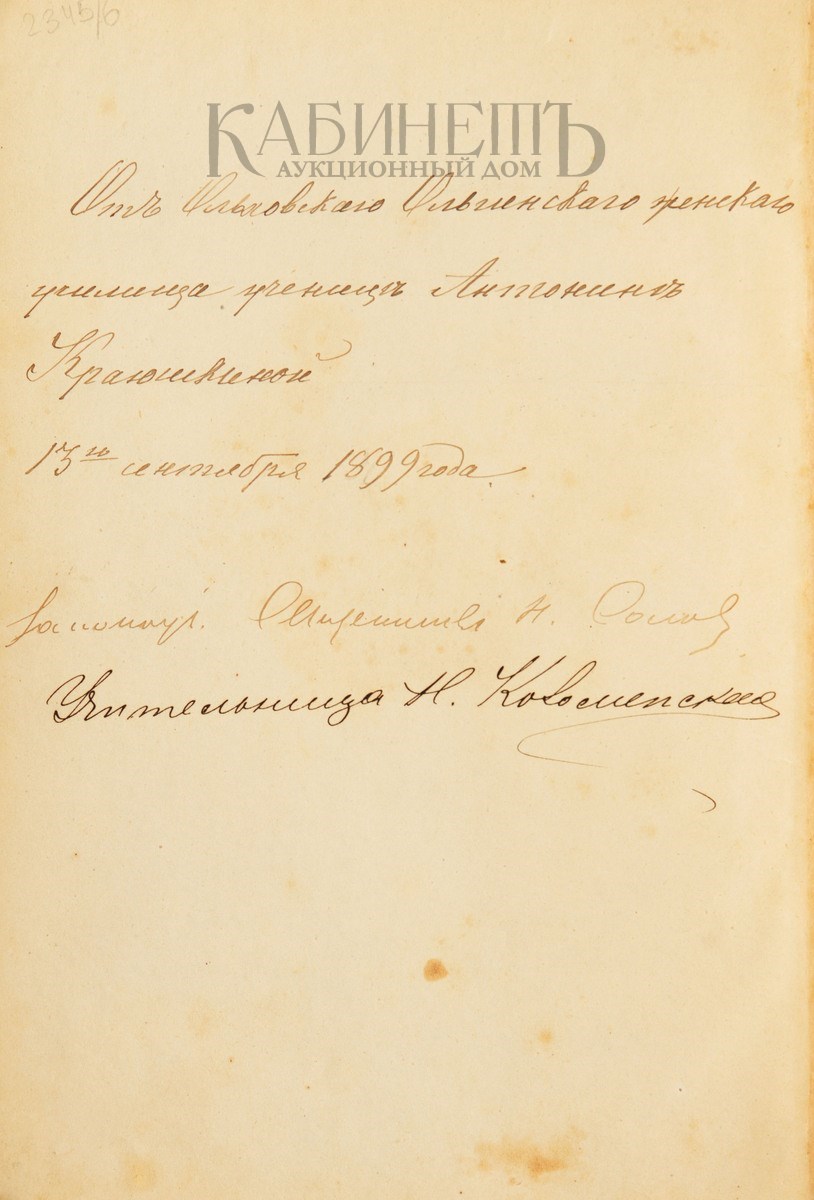 2345/6
КАБИНЕТЪ
АУКЦИОННЫЙ ДОМ
Отъ Ольховскаго Ольгенскаго женскаго
училища ученицѣ Антонинѣ
Краюшкиной
13го сентября 1899 года.
Законоуч. Священникъ Н.
Учительница Н. Коломенская